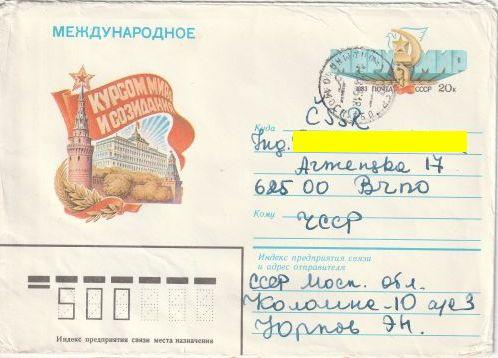 МЕЖДУНАРОДНОЕ
КУРСОМ МИРА
И СОЗИДАНИЯ
МИР
1983 ПОЧТА СССР 20к
Куда
ČSSR
Инд.
17
625 00 Брно
Кому
ЧССР
Индекс предприятия связи
и адрес отправителя
СССР Моск. обл.
Коломна-10 а/я 3
500
Индекс предприятия связи места назначения